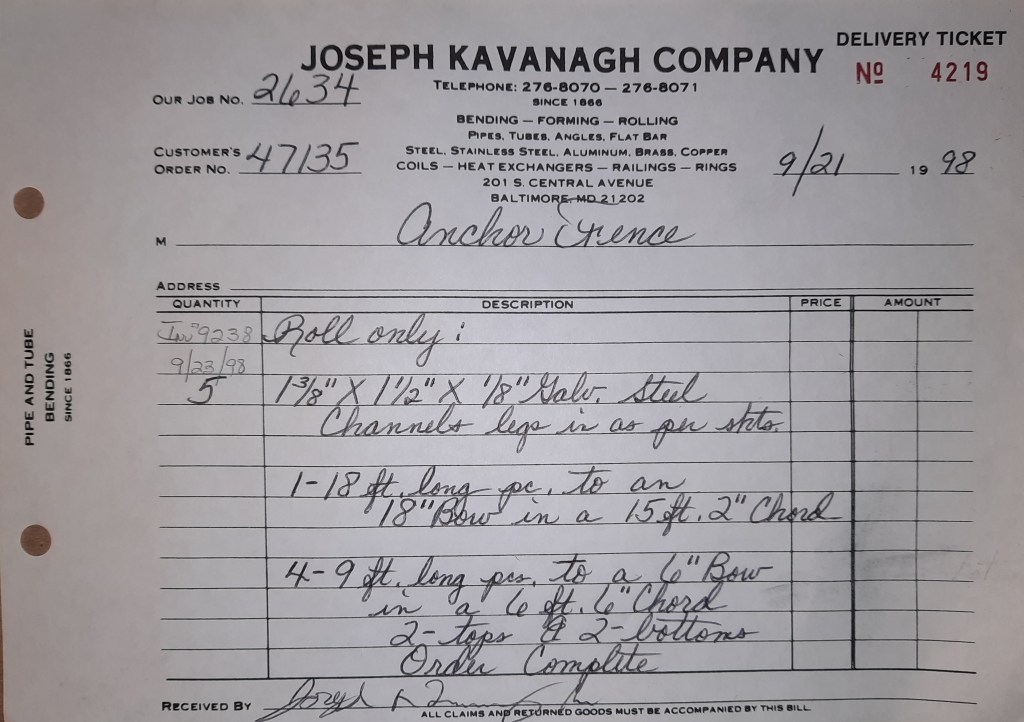 DELIVERY TICKET
JOSEPH KAVANAGH COMPANY
Nº 4219
TELEPHONE: 276-8070 — 276-8071
SINCE 1866
OUR JOB NO. 2634
BENDING — FORMING — ROLLING
PIPES, TUBES, ANGLES, FLAT BAR
STEEL, STAINLESS STEEL, ALUMINUM, BRASS, COPPER
CUSTOMER'S
ORDER NO. 47135
COILS — HEAT EXCHANGERS — RAILINGS — RINGS
9/21 19 98
201 S. CENTRAL AVENUE
BALTIMORE, MD 21202
M Anchor Fence
ADDRESS
QUANTITY DESCRIPTION PRICE AMOUNT
Inv# 9238 Roll only:
9/23/98
5 1 3/8" X 1 1/2" X 1/8" Galv. Steel
Channels legs in as per skts.
1-18 ft. long pc. to an
18" Bow in a 15 ft. 2" Chord
4-9 ft. long pcs. to a 6" Bow
in a 6 ft. 6" Chord
2-tops & 2-bottoms
Order Complete
RECEIVED BY
ALL CLAIMS AND RETURNED GOODS MUST BE ACCOMPANIED BY THIS BILL
PIPE AND TUBE
BENDING
SINCE 1866